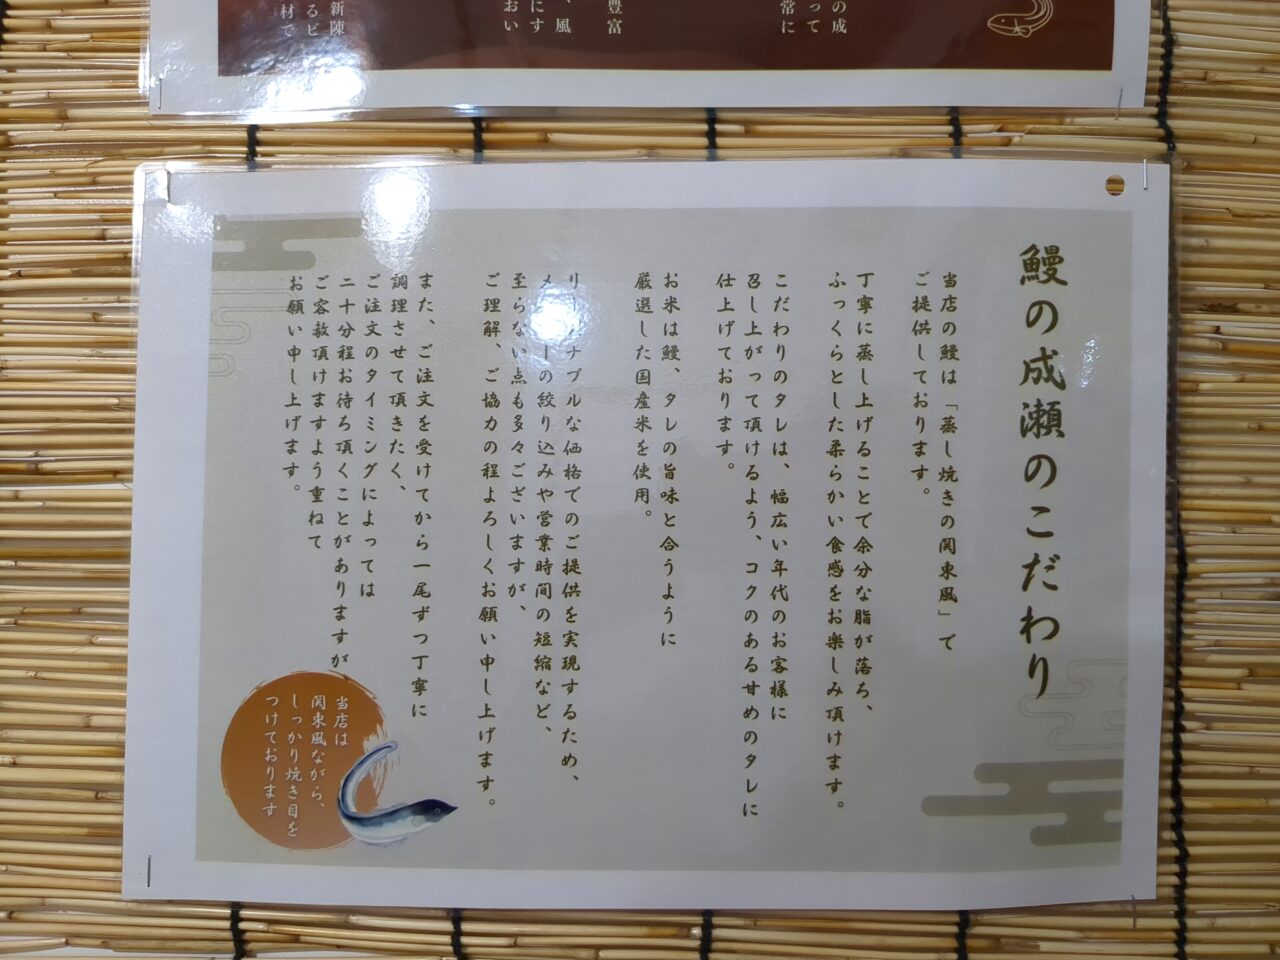 新陳
るビ
材で
、風
にす
おい
豊富
の成
って
常に
鰻の成瀬のこだわり
当店の鰻は「蒸し焼きの関東風」で
ご提供しております。
丁寧に蒸し上げることで余分な脂が落ち、
ふっくらとした柔らかい食感をお楽しみ頂けます。
こだわりのタレは、幅広い年代のお客様に
召し上がって頂けるよう、コクのある甘めのタレに
仕上げております。
お米は鰻、タレの旨味と合うように
厳選した国産米を使用。
リーズナブルな価格でのご提供を実現するため、
メニューの絞り込みや営業時間の短縮など、
至らない点も多々ございますが、
ご理解、ご協力の程よろしくお願い申し上げます。
また、ご注文を受けてから一尾ずつ丁寧に
調理させて頂きたく、
ご注文のタイミングによっては
二十分程お待ち頂くことがありますが
ご容赦頂けますよう重ねて
お願い申し上げます。
当店は
関東風ながら、
しっかり焼き目を
つけております